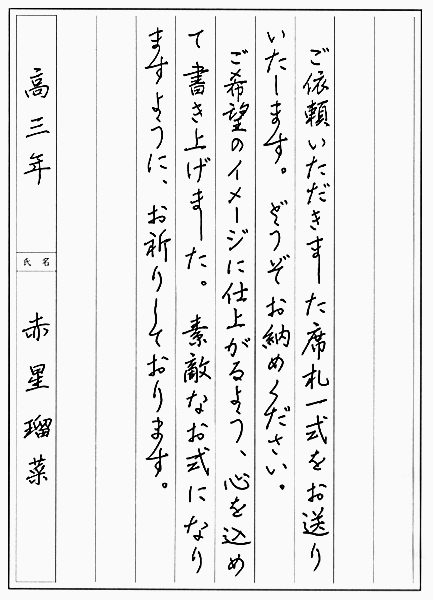 ご依頼いただきました席札一式をお送り
いたします。どうぞお納めください。
ご希望のイメージに仕上がるよう、心を込め
て書き上げました。素敵なお式になり
ますように、お祈りしております。
高三年
氏名
赤星瑠菜